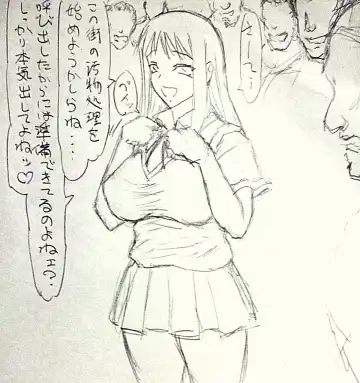 さて…
この街の汚物処理を
始めようかしらね…
呼び出したからには準備できてるのよねェ？
しっかり本気出してよねッ♡